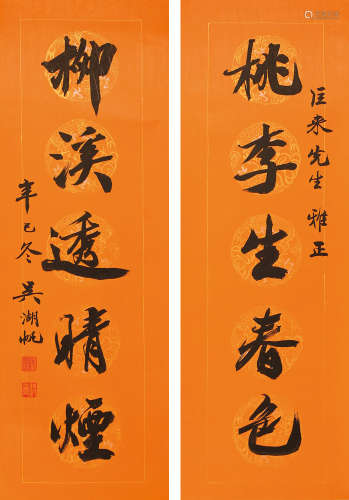 桃李生春色
汪来先生雅正
柳溪透晴煙
辛巳冬 吴湖帆